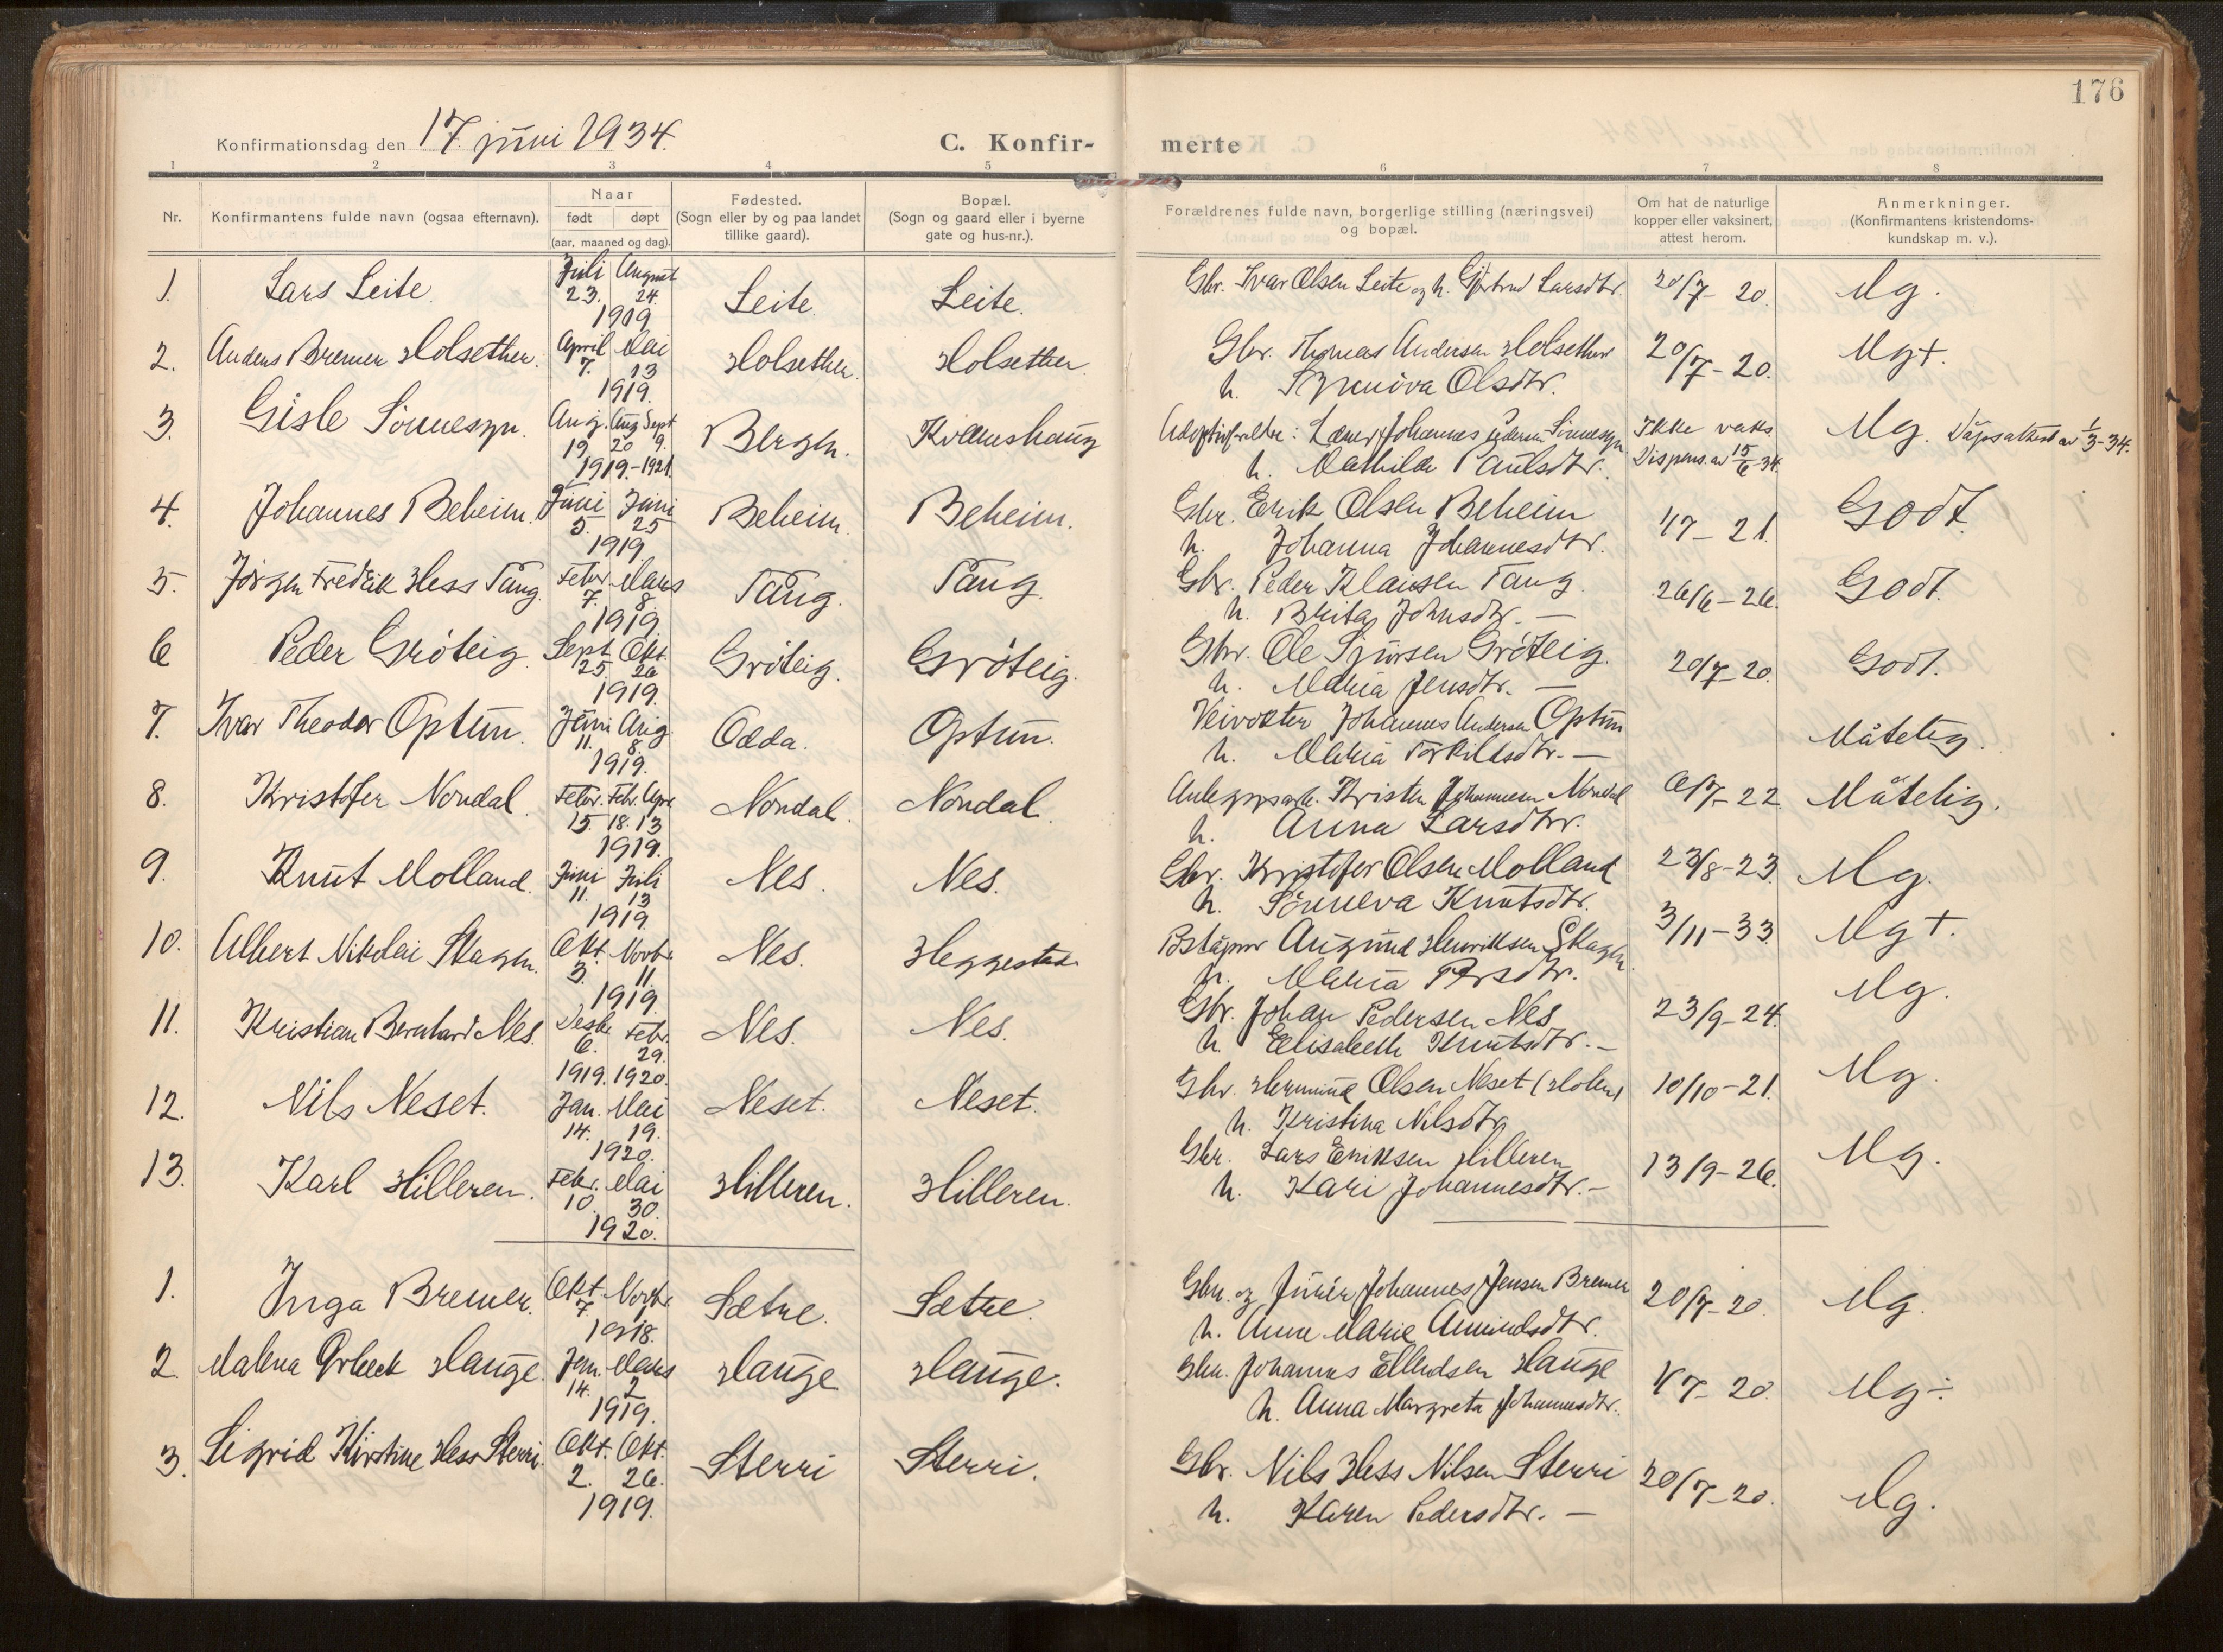 176
Konfirmationsdag den 17. juni 1934.
C. Konfir-
merte
1 2 3 4 5 6 7 8
Nr. Konfirmantens fulde navn (ogsaa efternavn). Naar født døpt (aar, maaned og dag). Fødested. (Sogn eller by og paa landet tillike gaard). Bopæl. (Sogn og gaard eller i byerne gate og hus-nr.). Forældrenes fulde navn, borgerlige stilling (næringsvei) og bopæl. Om hat de naturlige kopper eller vaksinert, attest herom. Anmerkninger. (Konfirmantens kristendoms-kundskap m. v.).
1. Lars Leite. Juli 23. August 24. 1919 Leite. Leite. Gbr. Ivar Olsen Leite og h. Gjertrud Larsdtr. 20/7-20. Mg.
2. Anders Bremer Holsether. April 7. Mai 13 1919. Holsether. Holsether. Gbr. Thomas Andersen Holsether
h. Synnöva Olsdtr. 20/7-20. Mg+.
3. Gisle Sönnesyn. Aug. 19 Aug 20 Sept 9. 1919.-1921. Bergen. Kvamshaug Adoptivforeldre: Lærer Johannes Pedersen Sönnesyn.
h. Mathilde Paulsdtr. Ikke vaks. Dispens. av 15/6-34. Mg. Dåpsattest av 1/3-34.
4. Johannes Beheim. Juni 5. Juni 25 1919. Beheim. Beheim. Gbr. Erik Olsen Beheim
h. Johanna Johannesdtr. 1/7-21. Godt.
5. Jörgen Fredrik Hess Tang. Febr. 7. Mars 8. 1919. Tang. Tang. Gbr. Peder Klausen Tang.
h. Brita Johnsdtr. — 26/6-26. Godt.
6 Peder Gröteig. Sept. 25. Okt. 26 1919. Gröteig. Gröteig. Gbr. Ole Sjursen Gröteig.
h. Maria Jensdtr. — 20/7-20. Godt.
7. Ivar Theodor Optun. Juni 11. Aug. 8. 1919. Odda. Optun. Veivokter Johannes Andersen Optun
h. Maria Torkildsdtr. — Måtelig.
8. Kristofer Nondal. Febr. 15. Febr. 18. Apr. 13 1919. Nondal. Nondal. Anlegsarb. Kristen Johannesen Nondal
h. Anna Larsdtr. 6/7-22 Måtelig.
9. Knut Molland. Juni 11. Juli 13 1919. Nes. Nes. Gbr. Kristofer Olsen Molland
h. Sönneva Knutsdtr. 23/8-23. Mg.
10. Albert Nikolai Skagen. Okt. 3. Novbr 11. 1919. Nes. Heggestad. Poståpner Augund Henriksen Skagen.
h. Maria Persdtr. 3/11-33. Mg+.
11. Kristian Bernhard Nes. Desbr 6. Febr. 29. 1919. 1920. Nes. Nes. Gbr. Johan Pedersen Nes
h. Elisabeth Knutsdtr. — 23/9-24. Mg.
12. Nils Neset. Jan. 14. Mai 19. 1920. Neset. Neset. Gbr. Hermund Olsen Neset (Holen)
h. Kristina Nilsdtr. 10/10-21. Mg.
13. Karl Hilleren. Febr. 10. Mai 30. 1920. Hilleren. Hilleren. Gbr. Lars Eriksen Hilleren
h. Kari Johannesdtr. — 13/9-26. Mg.
1. Inga Bremer. Okt. 7 Novbr. 1 1918. Sætre. Sætre. Gbr. og Johannes Jensen Bremer
h. Anne Marie Amundsdtr. 20/7-20. Mg.
2. Malena Orbeck Hauge. Jan. 14. Mars 2 1919. Hauge Hauge. Gbr. Johannes Ellendsen Hauge
h. Anna Margreta Johannesdtr. 1/7-20. Mg÷.
3. Sigrid Kirstine Hess Sterri. Okt. 2. Okt. 26. 1919. Sterri Sterri. Gbr. Nils Hess Nilsen Sterri
h. Karen Pedersdtr. — 20/7-20. Mg.